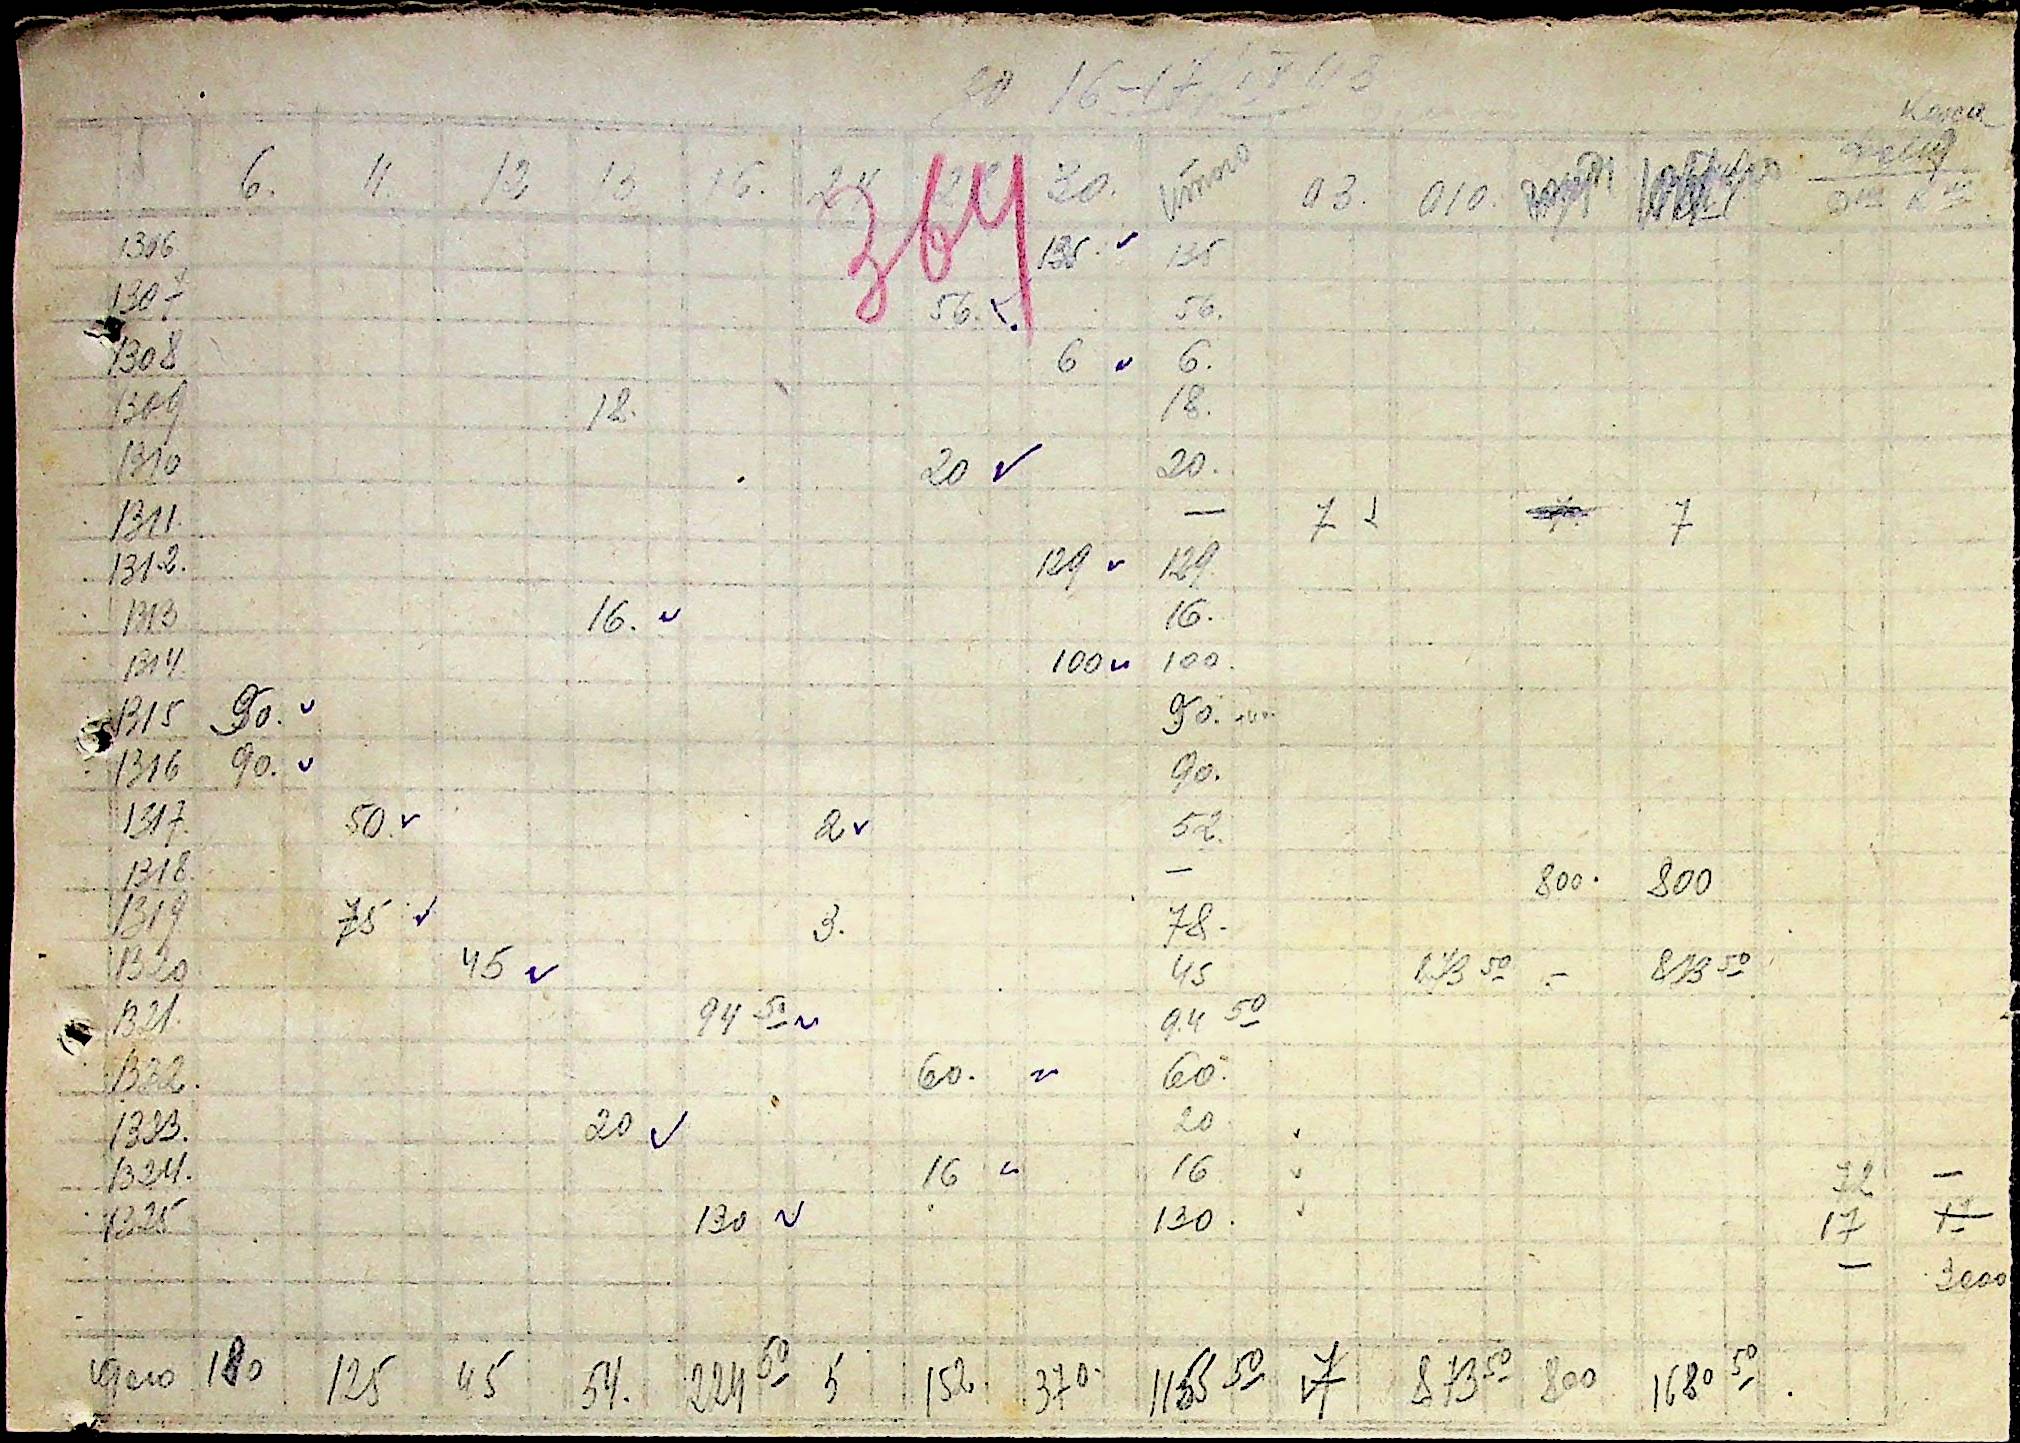 16-17/IV 43
Касса
6. 11. 12 13 15. 24 30. Итого 03. 010.
364
1306 135. 135
1307 56. 56.
1308 6 6.
1309 18. 18.
1310 20 20.
1311. — 7 7
1312. 129 129
1313 16. 16.
1314 100 100.
1315 90. 90.
1316 90. 90.
1317. 50. 2 52
1318. — 800. 800
1319 75 3. 78.
1320 45 45 873 50 - 873 50
1321. 94 50 94 50
1322. 60. 60.
1323. 20 20
1324. 16 16 72 —
1325 130 130. 17
— 3000
180 125 45 54. 224 50 5 152. 370. 1155 50 7 873 50 800 1680 50.